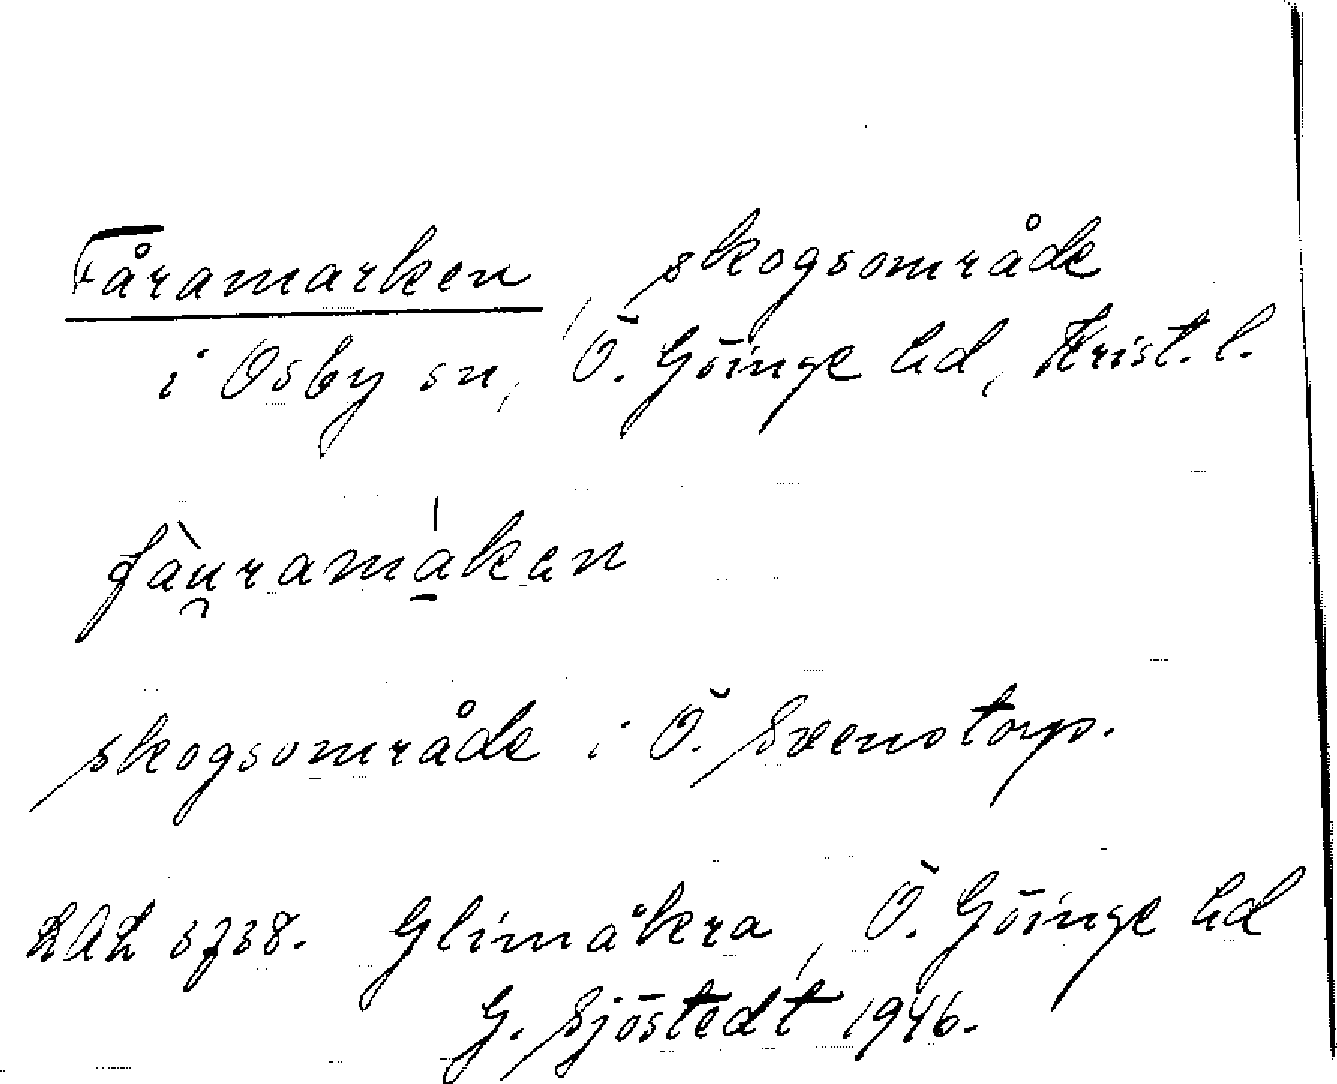 Fåramarken, skogsområde
i Osby sn, Ö. Göinge hd, Krist. l.
fàu̯ramákan
skogsområde i Ö. Svenstorp.
LAL 3738. Glimåkra, Ö. Göinge hd
G. Sjöstedt 1946.